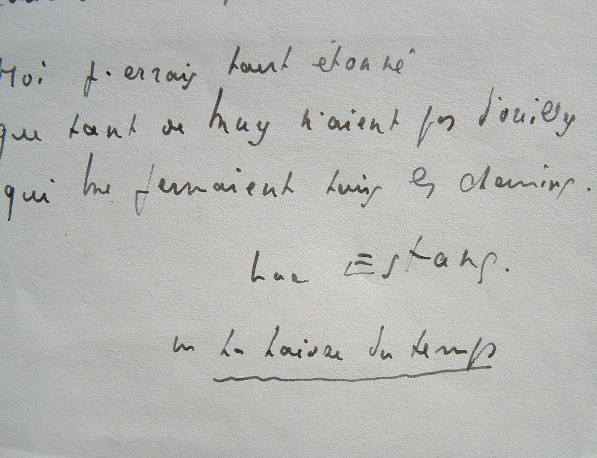 Moi j'errais tout étonné
que tant de murs n'aient pas d'oreilles
qui me fermaient tous les chemins.
Luc Estang.
in La laisse du temps